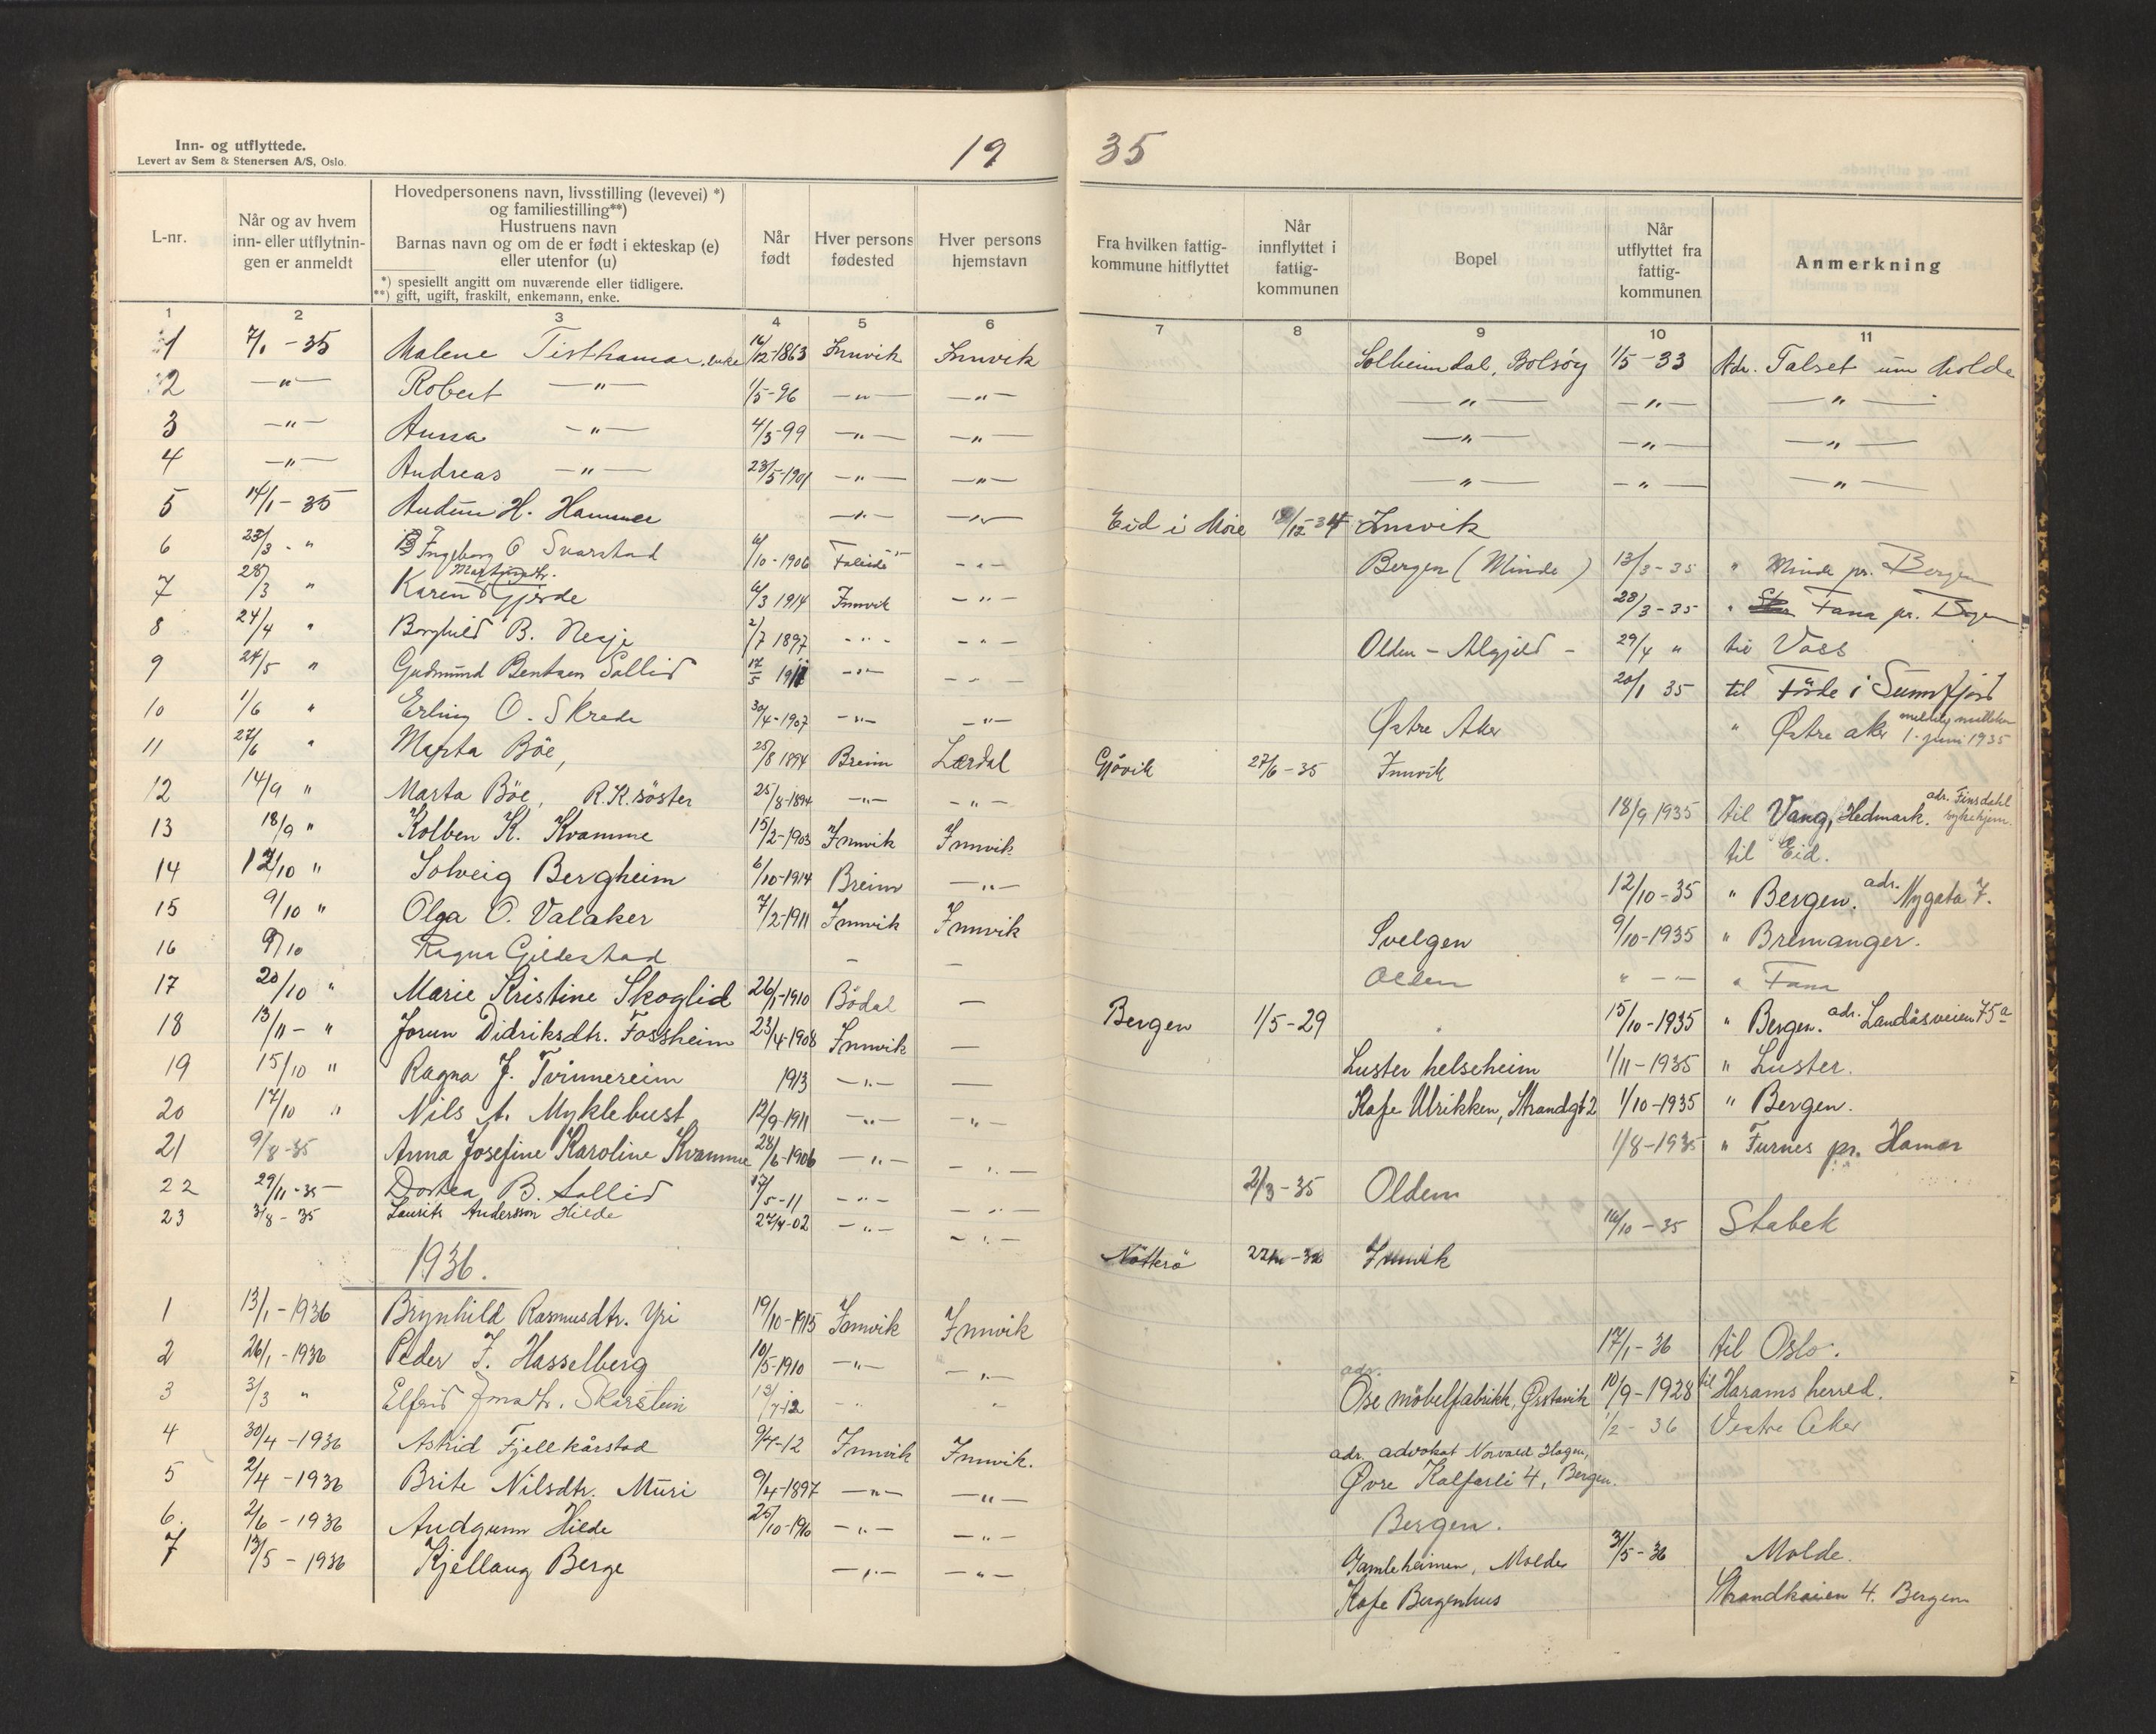 Inn- og utflyttede.
Levert av Sem & Stenersen A/S, Oslo.
19 35
L-nr.
Når og av hvem
inn- eller utflytnin-
gen er anmeldt
Hovedpersonens navn, livsstilling (levevei) *)
og familiestilling**)
Hustruens navn
Barnas navn og om de er født i ekteskap (e)
eller utenfor (u)
*) spesiellt angitt om nuværende eller tidligere.
**) gift, ugift, fraskilt, enkemann, enke.
Når
født
Hver persons
fødested
Hver persons
hjemstavn
Fra hvilken fattig-
kommune hitflyttet
Når
innflyttet i
fattig-
kommunen
Bopel
Når
utflyttet fra
fattig-
kommunen
Anmerkning
1 2 3 4 5 6 7 8 9 10 11
1 7/1 - 35 Malene Tisthamar, enke 16/12-1863 Innvik Innvik Solheimdal, Bolsöy 1/5 - 33 Adr. Talset um Molde
2 —"— Robert —"— 1/5-96 —"— —"— —"— —"— —"—
3 —"— Anna —"— 4/3-99 —"— —"— —"— —"— —"—
4 —"— Andreas —"— 23/5-1901 —"— —"— —"— —"— —"—
5 14/1 - 35 Audun H. Hammer —"— —"— Eid i Möre /12-34 Innvik
6 23/3 - " Ingeborg O Svarstad 6/10-1906 —"— Bergen (Minde) 13/3-35 " Minde pr. Bergen
7 28/3 " Karen Gjerde 6/3 1914 Innvik —"— 28/3-35 " Fana pr. Bergen
8 24/4 " Borghild B. Nesje 2/7 1897 —"— —"— Olden - - 29/4 " til Voss
9 24/5 " Gudmund Bentsen Sollid 17/5 —"— —"— 20/1 35 til Förde i Sunnfjord
10 1/6 " Erling O. Skrede 30/4-1907 —"— —"— Østre Aker " Østre aker 1. juni 1935
11 27/6 " Marta Böe, 25/8 1894 Breim Lærdal Gjövik 27/6-35 Innvik
12 14/9 " Marta Böe, R.K.söster 25/8-1894 —"— —"— 18/9 1935 til Vang, Hedmark. adr. Finsdahl sykehjem.
13 18/9 " Kolben K. Kvamme 15/2-1903 Innvik Innvik til Eid.
14 12/10 " Solveig Bergheim 6/10-1914 Breim —"— 12/10-35 " Bergen. adr. Nygata 7.
15 9/10 " Olga O. Valaker 7/2-1911 Innvik Innvik Svelgen 9/10-1935 " Bremanger.
16 9/10 Ragna Gildestad — — Olden " — " Fana
17 20/10 " Marie Kristine Skoglid 26/1-1910 Bödal — Bergen 1/5-29 15/10-1935 " Bergen. adr. Landåsveien 75a
18 13/11- " Jorun Didriksdtr. Fossheim 23/4-1908 Innvik — Luster helseheim 1/11-1935 " Luster.
19 15/10 " Ragna J. Tvinnereim 1913 —"— — Kafe Ulrikken, Strandgt 2 1/10-1935 " Bergen.
20 17/10 " Nils A. Myklebust 12/9-1911 —"— —"— 1/8-1935 " Furnes pr. Hamar
21 9/8-35 Anna Josefine Karoline Kvamme 28/6-1906 —"— —"— 2/3-35 Olden
22 29/11-35 Dortea B. Sollid 17/5-11 —"— —"— 16/10-35 Stabek
23 3/8-35 Laurits Andersson Hilde 27/4-02 —"— —"— Nötterö Innvik
1936.
1 13/1-1936 Brynhild Rasmusdtr. Yri 19/10-1915 Innvik Innvik 17/1-36 til Oslo.
2 26/1-1936 Peder J. Hasselberg 10/5-1910 —"— —"— adr. Ose möbelfabrikk, Ørstavik 10/9-1928 til Harams herred.
3 3/3 " Elfrid Skarstein —"— " 1/2-36 Vestre Aker
4 30/4-1936 Astrid Fjellkårstad 9/4-12 Innvik Innvik. adr. advokat Norvald Hagen,
Øvre Kalfarli 4, Bergen.
5 2/4-1936 Brite Nilsdtr. Muri 9/4-1897 —"— —"— Bergen.
6. 2/6-1936 Audgunn Hilde 25/10-1910 —"— —"— Gamleheimen, Molde 31/5-36 Molde.
7 13/5-1936 Kjellaug Berge —"— —"— Kafe Bergenhus Strandkaien 4. Bergen